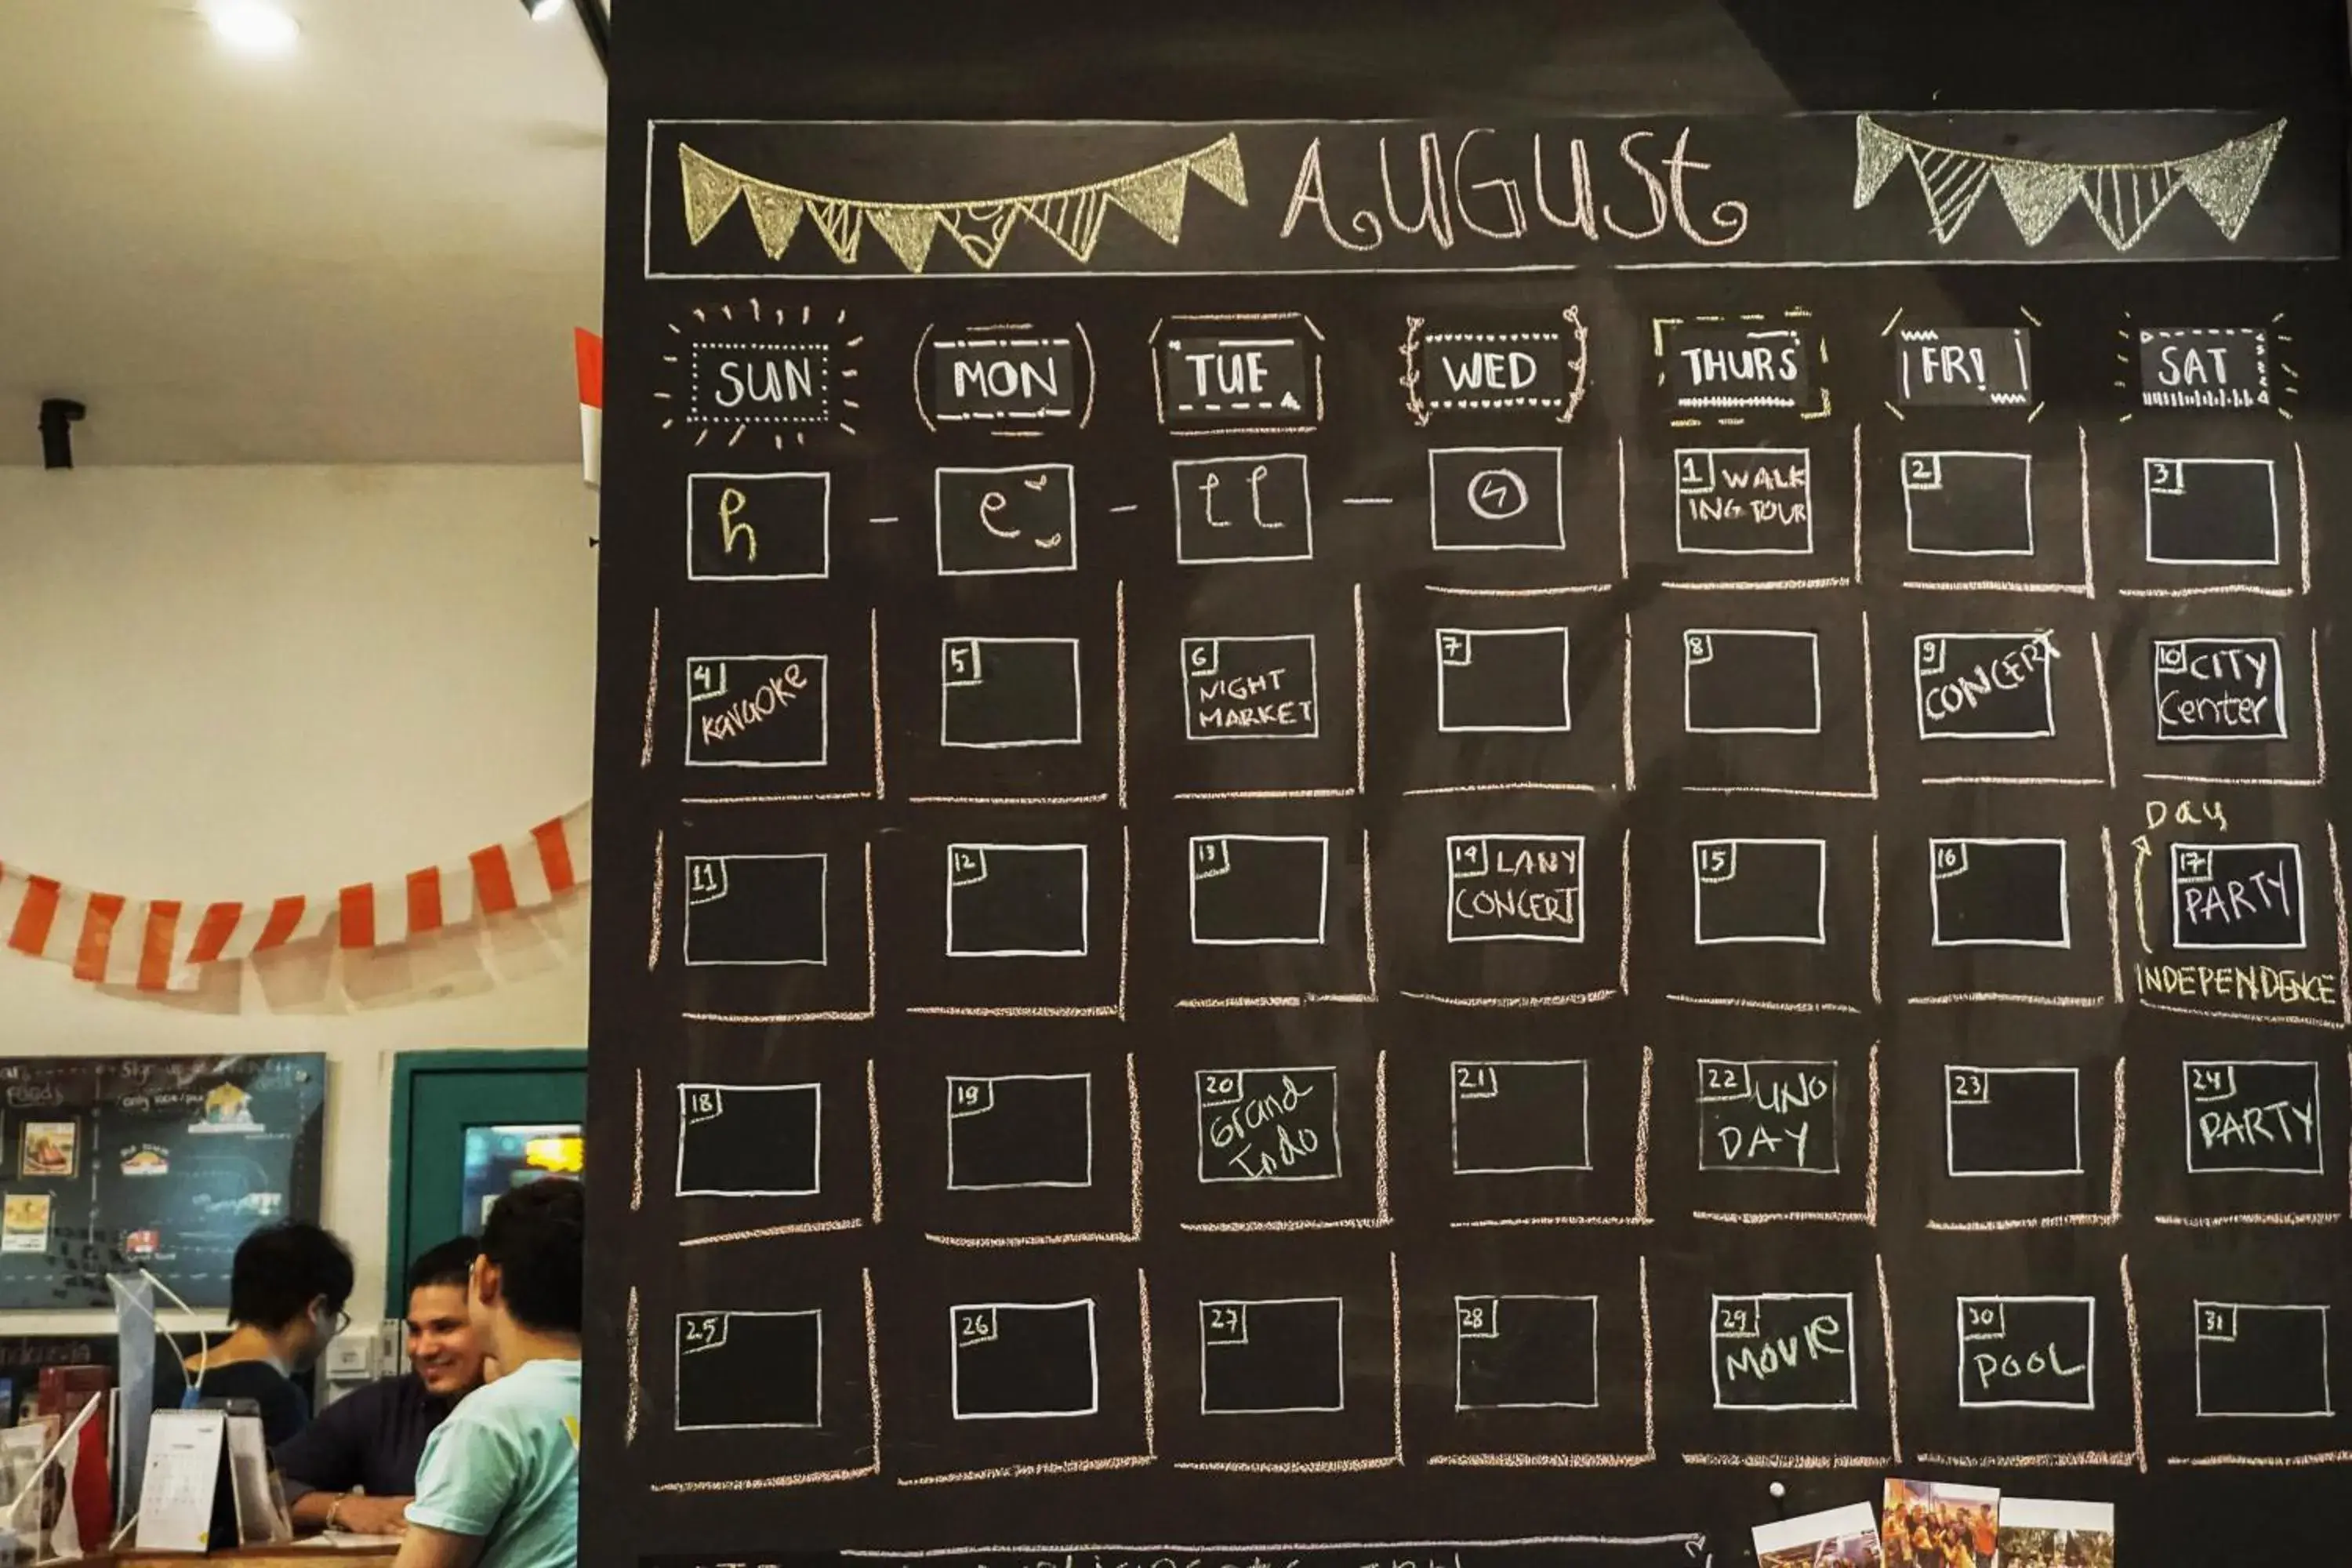 AUGUST
SUN MON TUE WED THURS FRI SAT
h - e - ll -
1 WALK
ING TOUR
2
3
4
Karaoke
5
6
NIGHT
MARKET
7
8
9
CONCERT
10 CITY
Center
11
12
13
14 LANY
CONCERT
15
16
Day
17
PARTY
INDEPENDENCE
18
19
20
Grand
Indo
21
22 UNO
DAY
23
24
PARTY
25
26
27
28
29
MOVIE
30
POOL
31
Foods